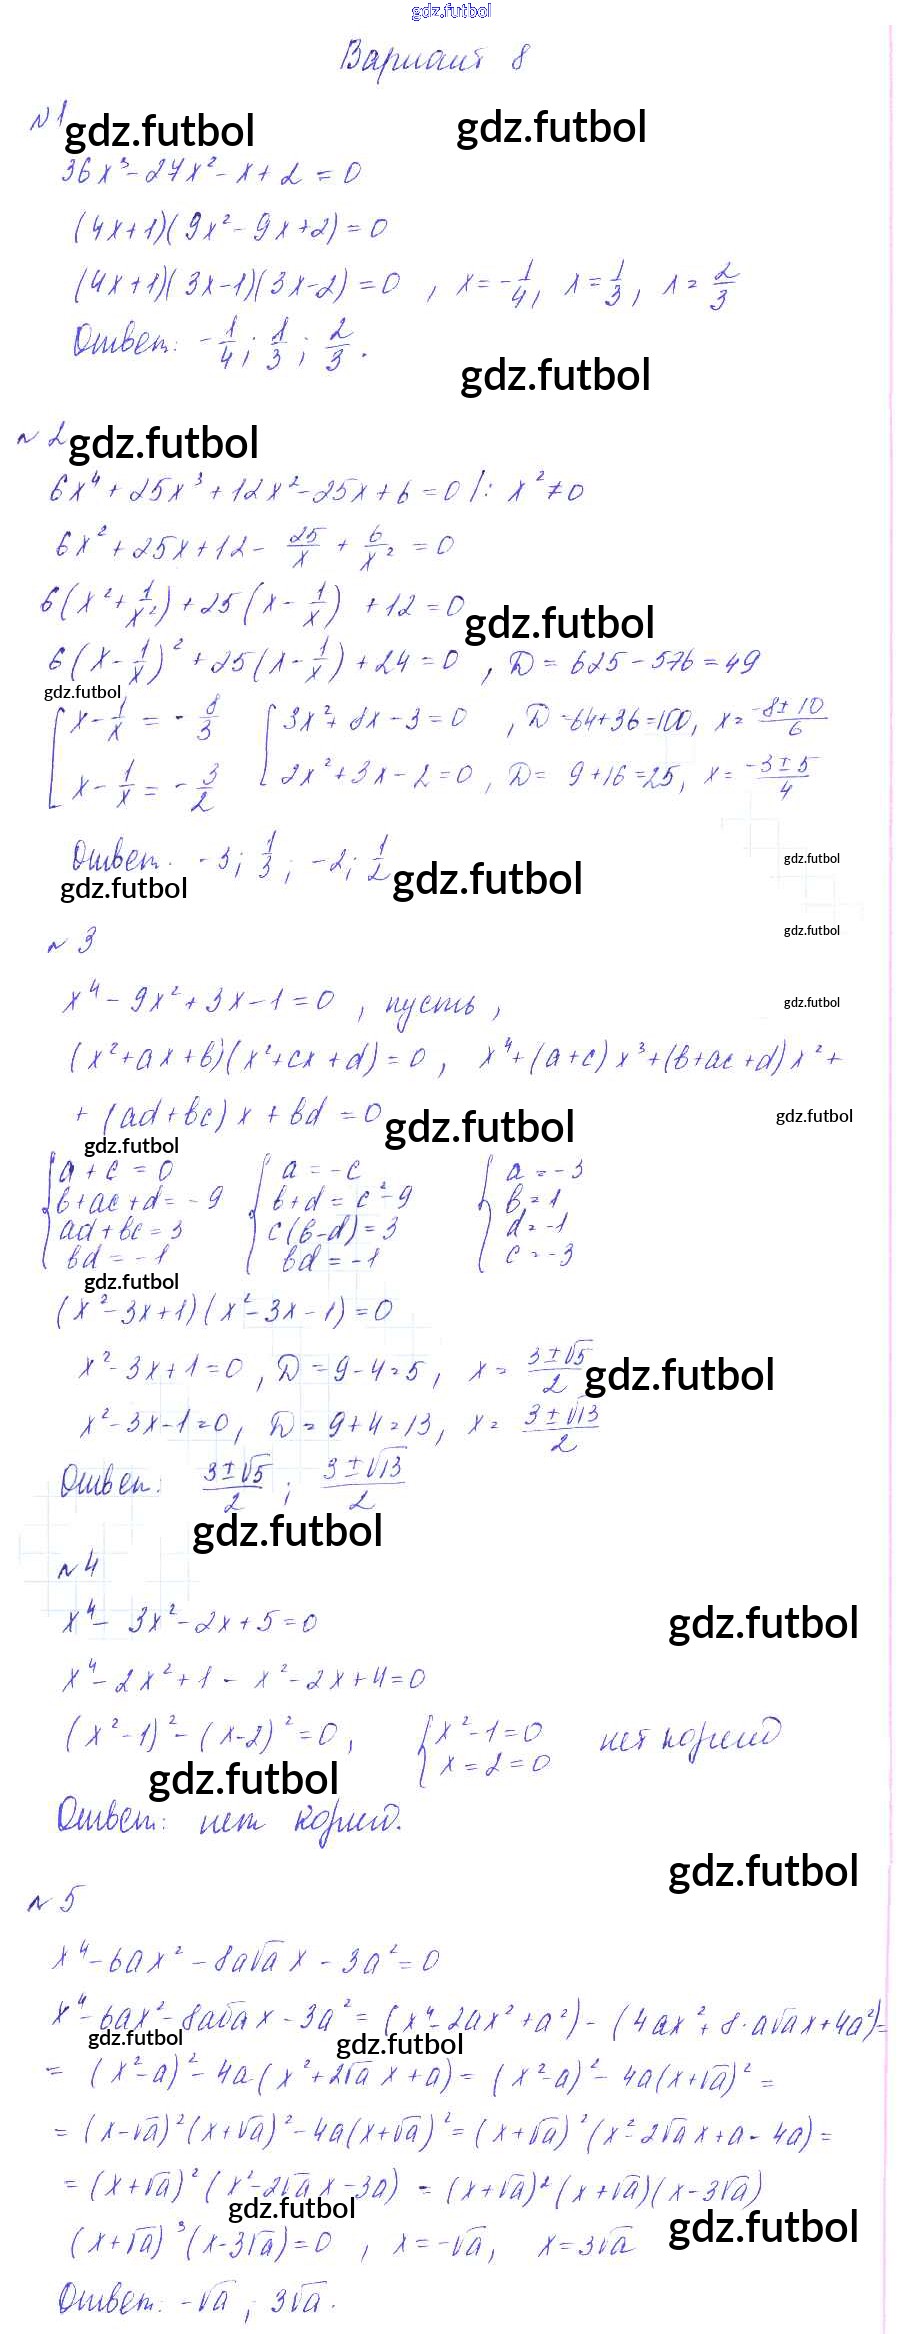 gdz.futbol
Вариант 8
№1 gdz.futbol gdz.futbol
36x³-24x²-x+2=0
(4x+1)(9x²-9x+2)=0
(4x+1)(3x-1)(3x-2)=0, x=-1/4, x=1/3, x=2/3
Ответ: -1/4; 1/3; 2/3.
gdz.futbol
№2 gdz.futbol
6x⁴+25x³+12x²-25x+6=0 |: x²≠0
6x²+25x+12-25/x+6/x²=0
6(x²+1/x²)+25(x-1/x)+12=0
gdz.futbol
6(x-1/x)²+25(x-1/x)+24=0, D=625-576=49
gdz.futbol
[x-1/x=-8/3 [3x²+8x-3=0, D=64+36=100, x=(-8±10)/6
x-1/x=-3/2 2x²+3x-2=0, D=9+16=25, x=(-3±5)/4
Ответ. -3; 1/3; -2; 1/2
gdz.futbol gdz.futbol gdz.futbol
gdz.futbol
№3
x⁴-9x²+3x-1=0, пусть,
gdz.futbol
(x²+ax+b)(x²+cx+d)=0, x⁴+(a+c)x³+(b+ac+d)x²+
+(ad+bc)x+bd=0
gdz.futbol gdz.futbol gdz.futbol
{a+c=0 {a=-c {a=-3
b+ac+d=-9 b+d=c²-9 b=1
ad+bc=3 c(b-d)=3 d=-1
bd=-1 bd=-1 c=-3
gdz.futbol
(x²-3x+1)(x²-3x-1)=0
x²-3x+1=0, D=9-4=5, x=(3±√5)/2
gdz.futbol
x²-3x-1=0, D=9+4=13, x=(3±√13)/2
Ответ: (3±√5)/2; (3±√13)/2
gdz.futbol
№4
x⁴-3x²-2x+5=0
gdz.futbol
x⁴-2x²+1-x²-2x+4=0
(x²-1)²-(x-2)²=0, {x²-1=0 нет корней
x=2=0
gdz.futbol
Ответ: нет корней.
gdz.futbol
№5
x⁴-6ax²-8a√a x-3a²=0
x⁴-6ax²-8a√a x-3a²=(x⁴-2ax²+a²)-(4ax²+8·a√a x+4a²)=
gdz.futbol gdz.futbol
=(x²-a)²-4a(x²+2√a x+a)=(x²-a)²-4a(x+√a)²=
=(x-√a)²(x+√a)²-4a(x+√a)²=(x+√a)²(x²-2√a x+a-4a)=
=(x+√a)²(x²-2√a x-3a)=(x+√a)²(x+√a)(x-3√a)
gdz.futbol gdz.futbol
(x+√a)³(x-3√a)=0, x=-√a, x=3√a
Ответ: -√a; 3√a.